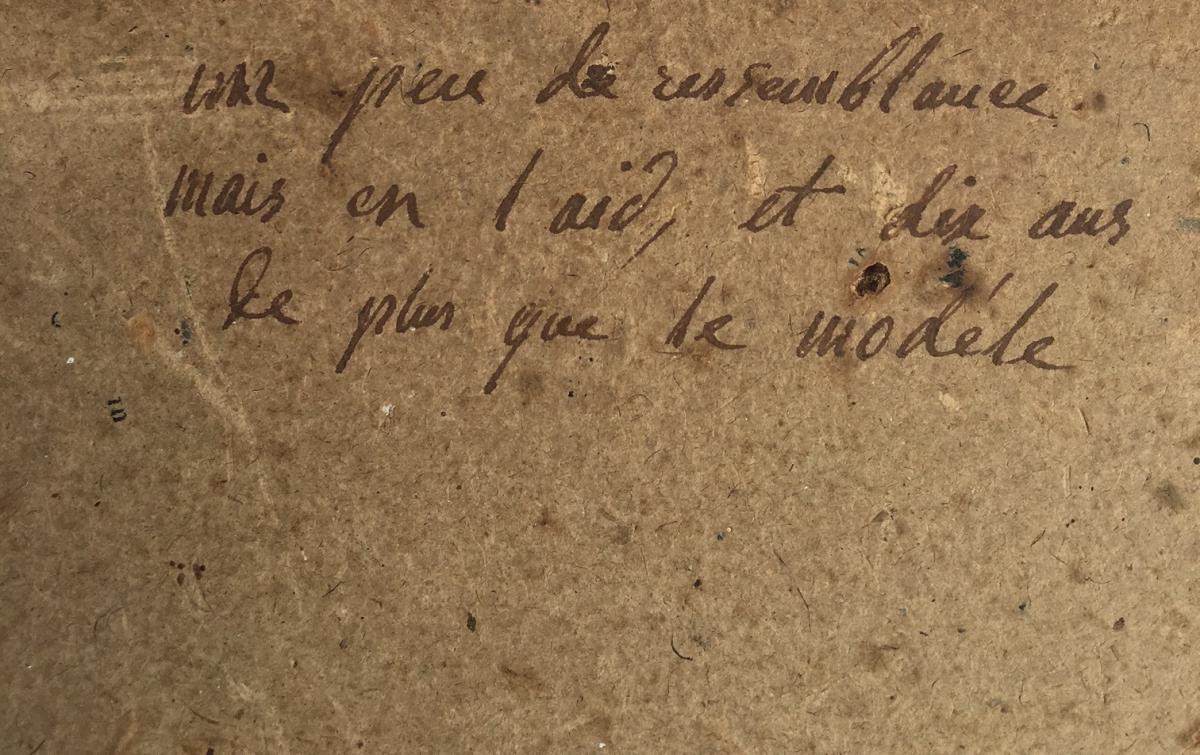 un peu de ressemblance.
mais en l'aid, et dix ans
de plus que le modéle